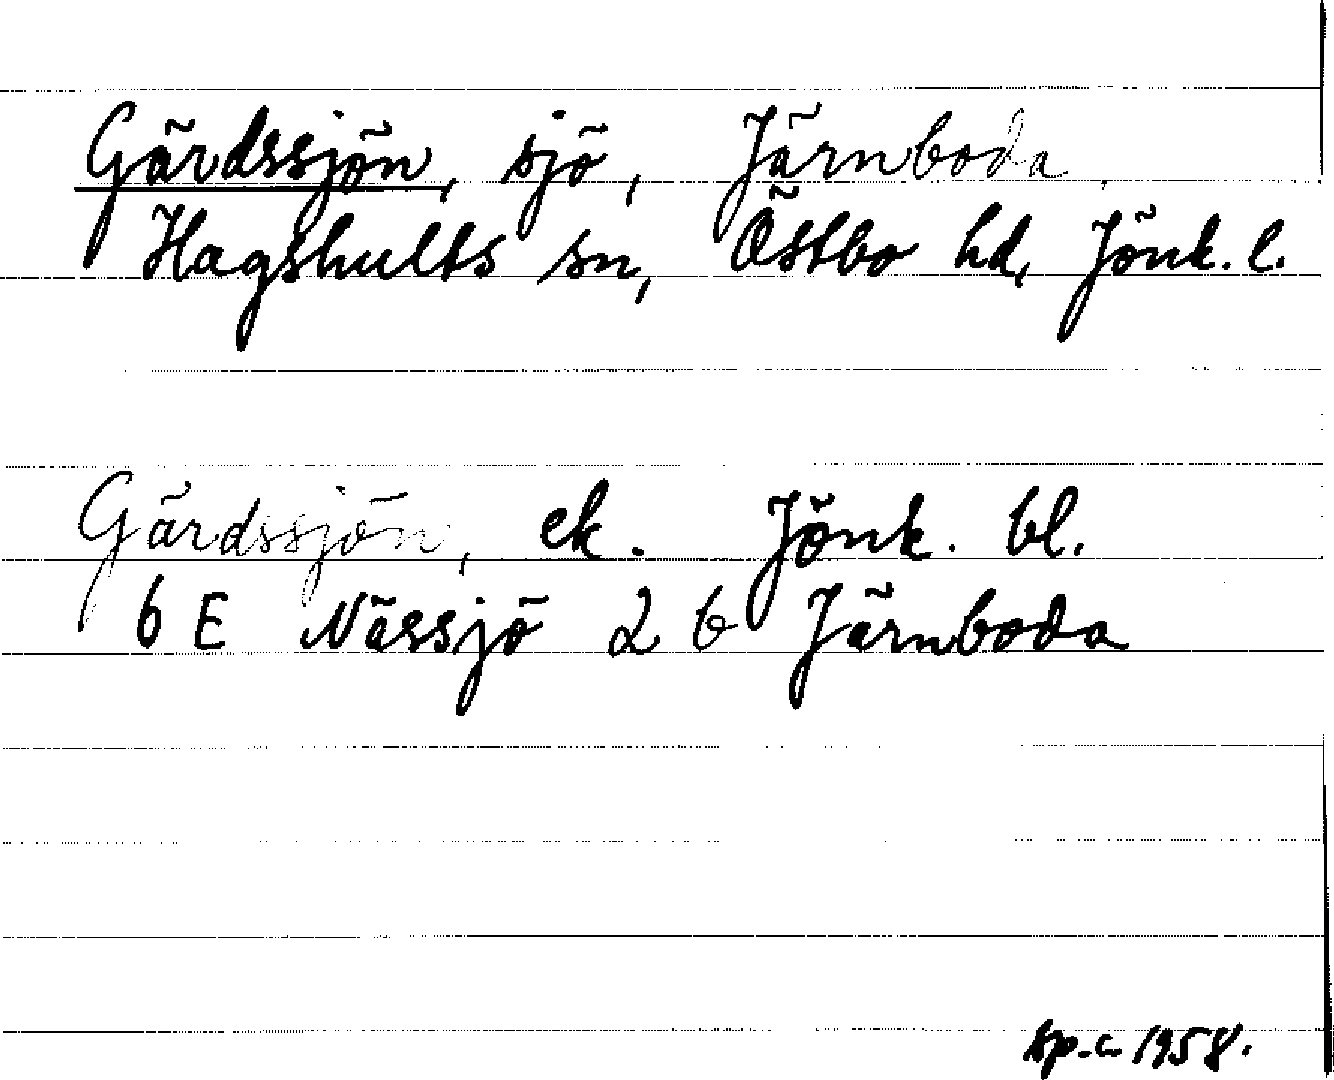 Gärdssjön, sjö, Järnboda,
Hagshults sn, Östbo hd, Jönk. l.
Gärdssjön, ek. Jönk. bl.
6 E Nässjö 2 b Järnboda
sp.c 1958.